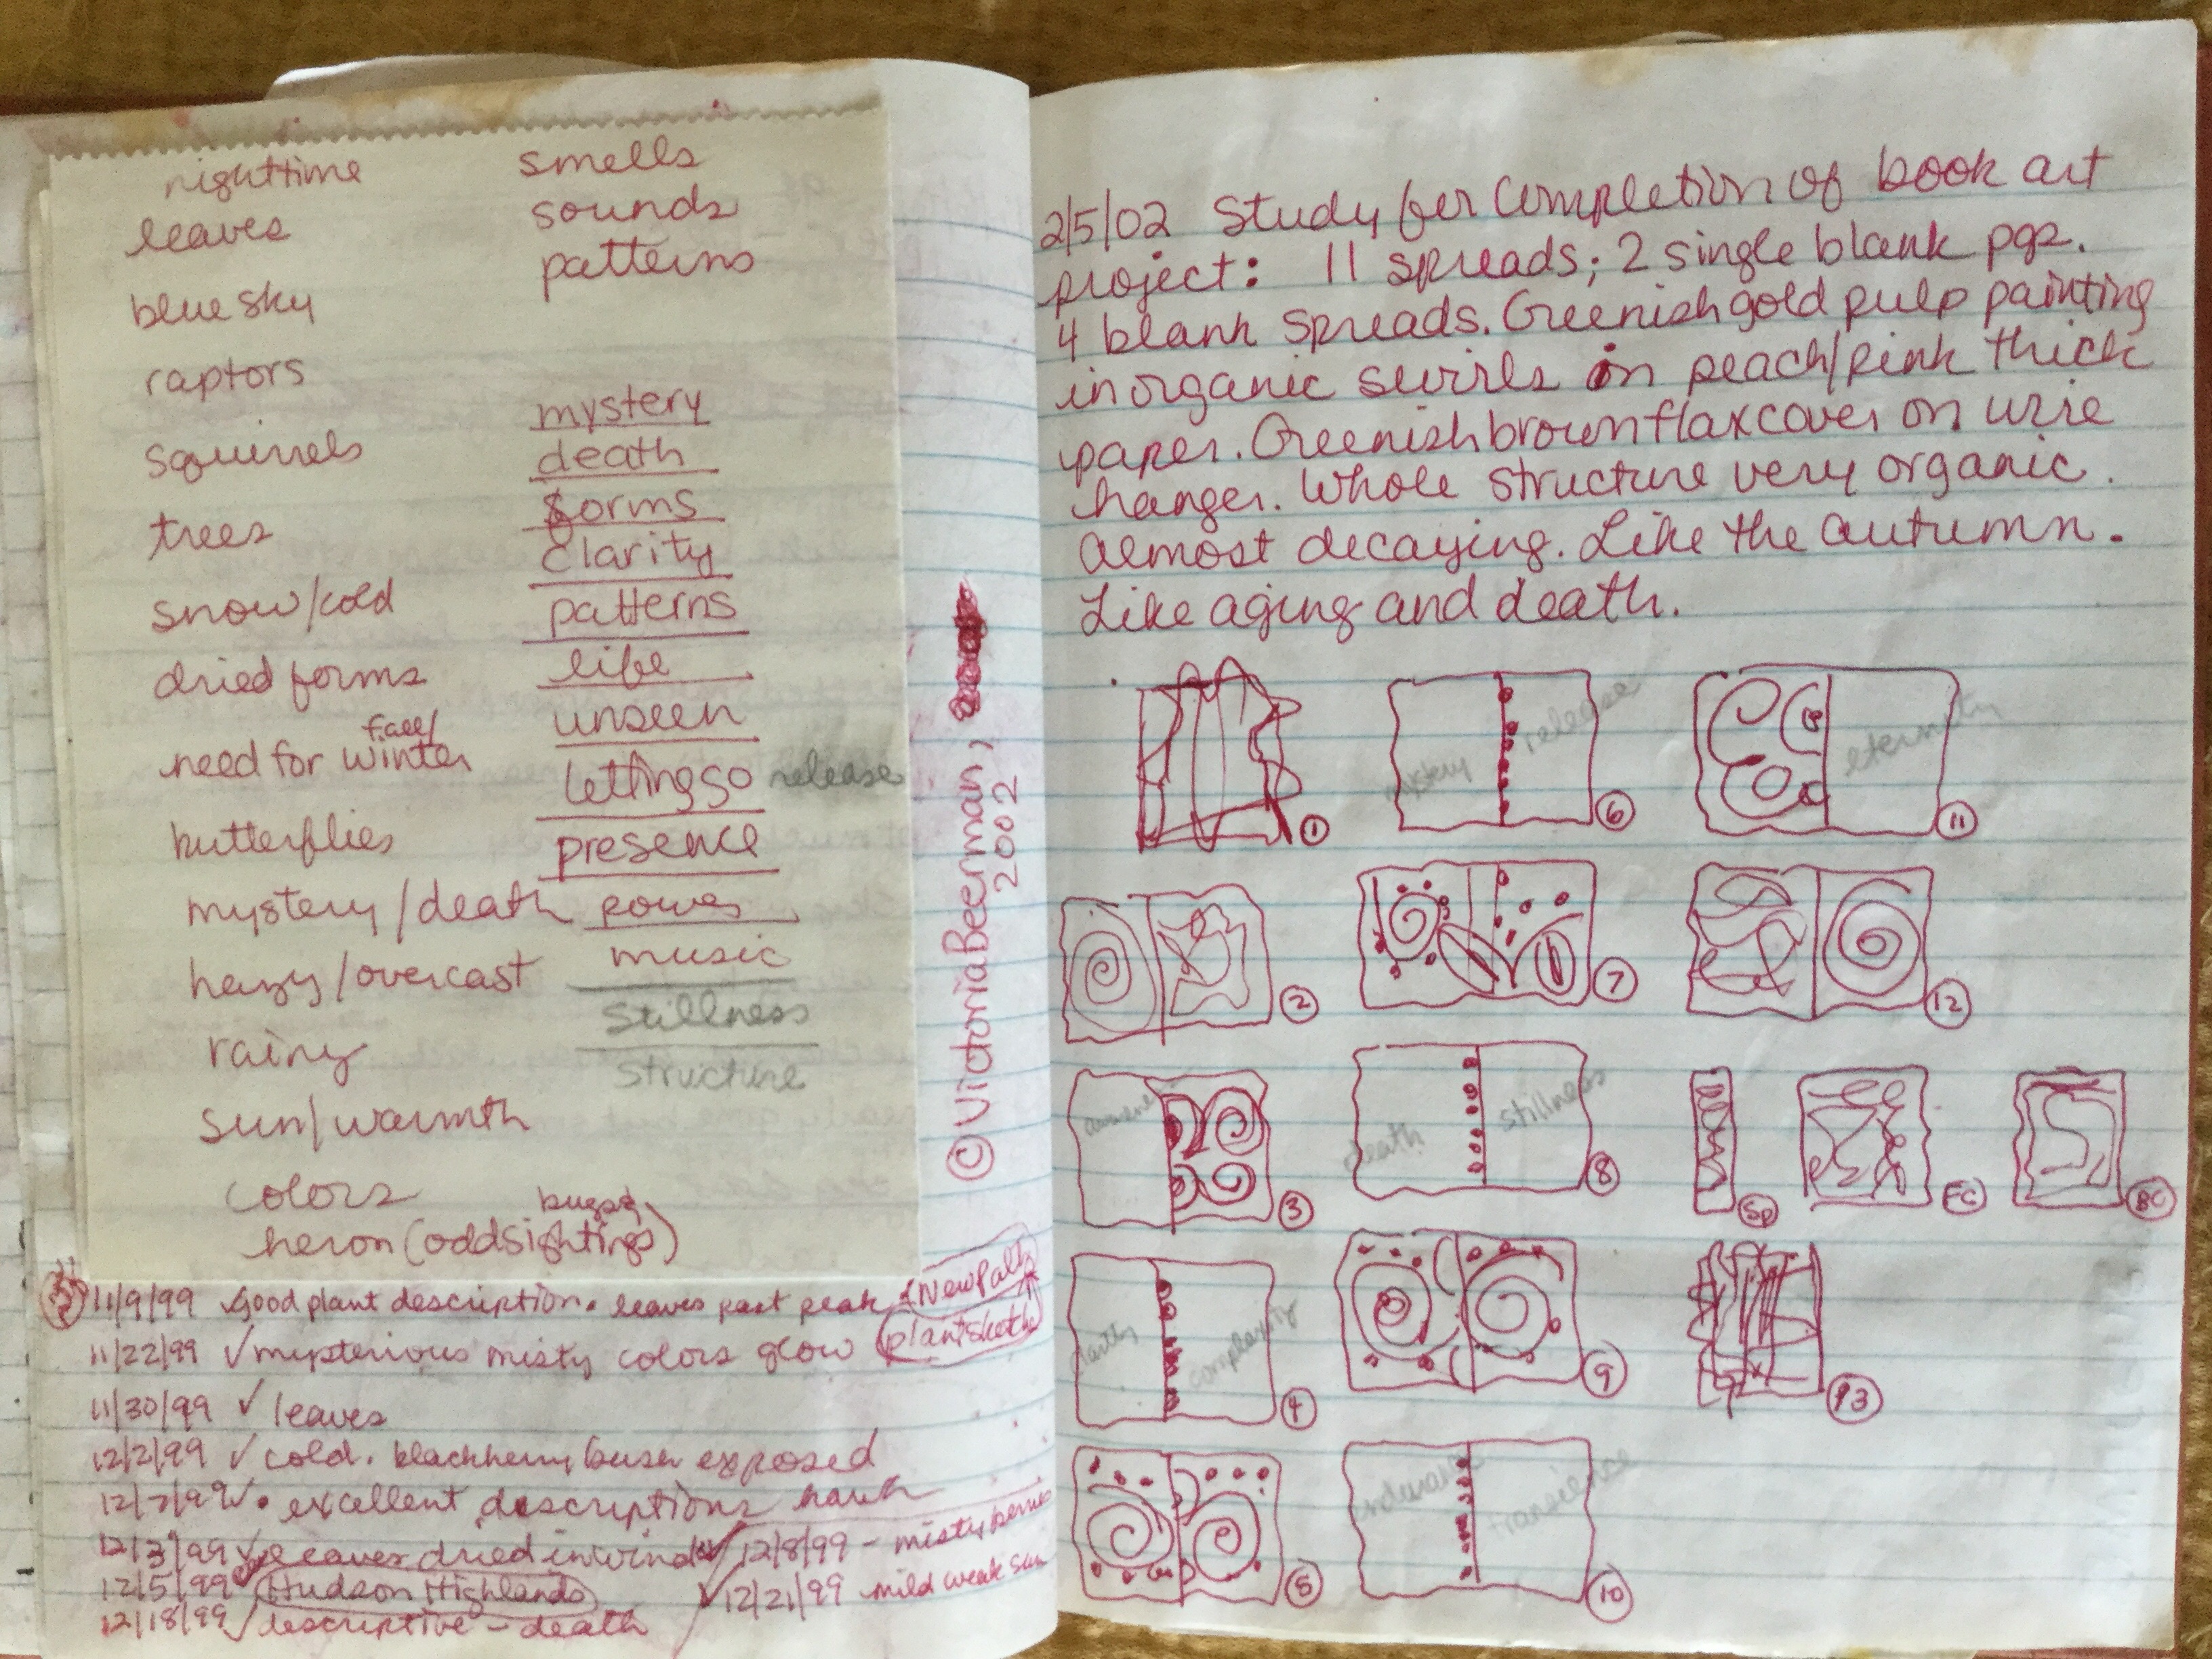 nighttime
leaves
blue sky
raptors
squirrels
trees
snow/cold
dried forms
fall/
need for winter
butterflies
mystery/death
hazy/overcast
rainy
sun/warmth
colors
bugs
heron (odd sightings)
smells
sounds
patterns
mystery
death
forms
clarity
patterns
life
unseen
letting go release
presence
power
music
stillness
structure
11/9/99 good plant description. leaves past peak New Paltz
11/22/99 ✓ mysterious misty colors glow plant sketch
11/30/99 ✓ leaves
12/2/99 ✓ cold. blackberry bush exposed
12/7/99 ✓ • excellent descriptions hawk
12/3/99 ✓ leaves dried in wind ✓ 12/8/99 - misty berries
12/5/99 ✓ Hudson Highlands ✓ 12/21/99 mild weak sun
12/18/99 ✓ descriptive - death
© Victoria Beerman,
2002
2/5/02 Study for completion of book art
project: 11 spreads; 2 single blank pgs.
4 blank spreads. Greenish gold pulp painting
in organic swirls on peach/pink thick
paper. Greenish brown flax cover on wire
hanger. Whole structure very organic.
Almost decaying. Like the autumn.
Like aging and death.
1
mystery release 6
eternity 11
2
7
12
3
death stillness 8
Sp
FC
BC
clarity complexity 4
9
13
5
endurance transience 10